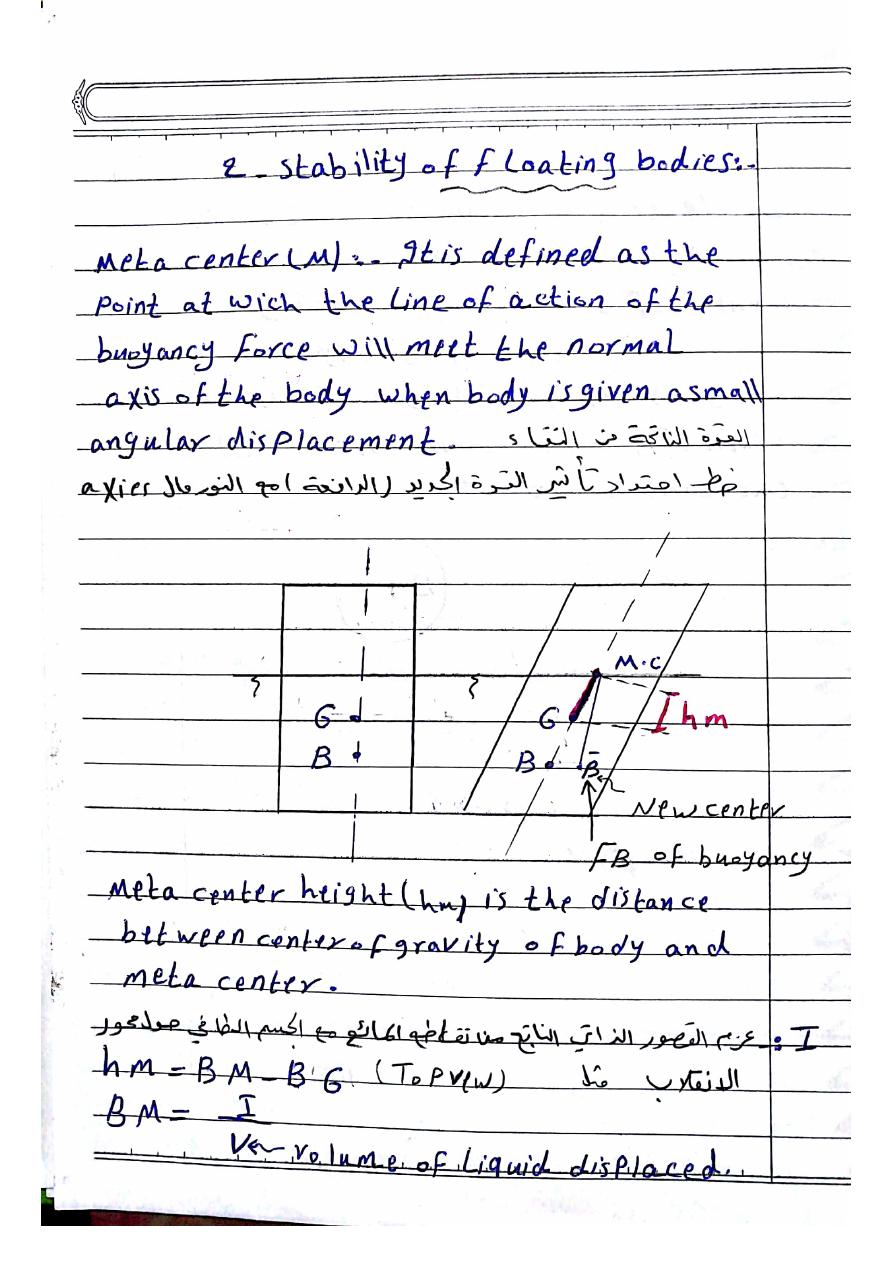 2 - Stability of floating bodies:-
Meta center (M):- It is defined as the
Point at wich the line of action of the
buoyancy force will meet the normal
axis of the body when body is given a small
angular displacement. القوة الناتجة من التقاء
خط امتداد تأثير القوة الجديد (الدافعة) مع النورمال axies
M.C
G
B
G
B
B̄
hm
New center
FB of buoyancy
Meta center height (hm) is the distance
between center of gravity of body and
meta center.
I : عزم القصور الذاتي الناتج من تقاطع المائع مع الجسم الطافي حول محور
hm = BM - BG (Top View) الانقلاب
BM = I
V ← volume of liquid displaced.